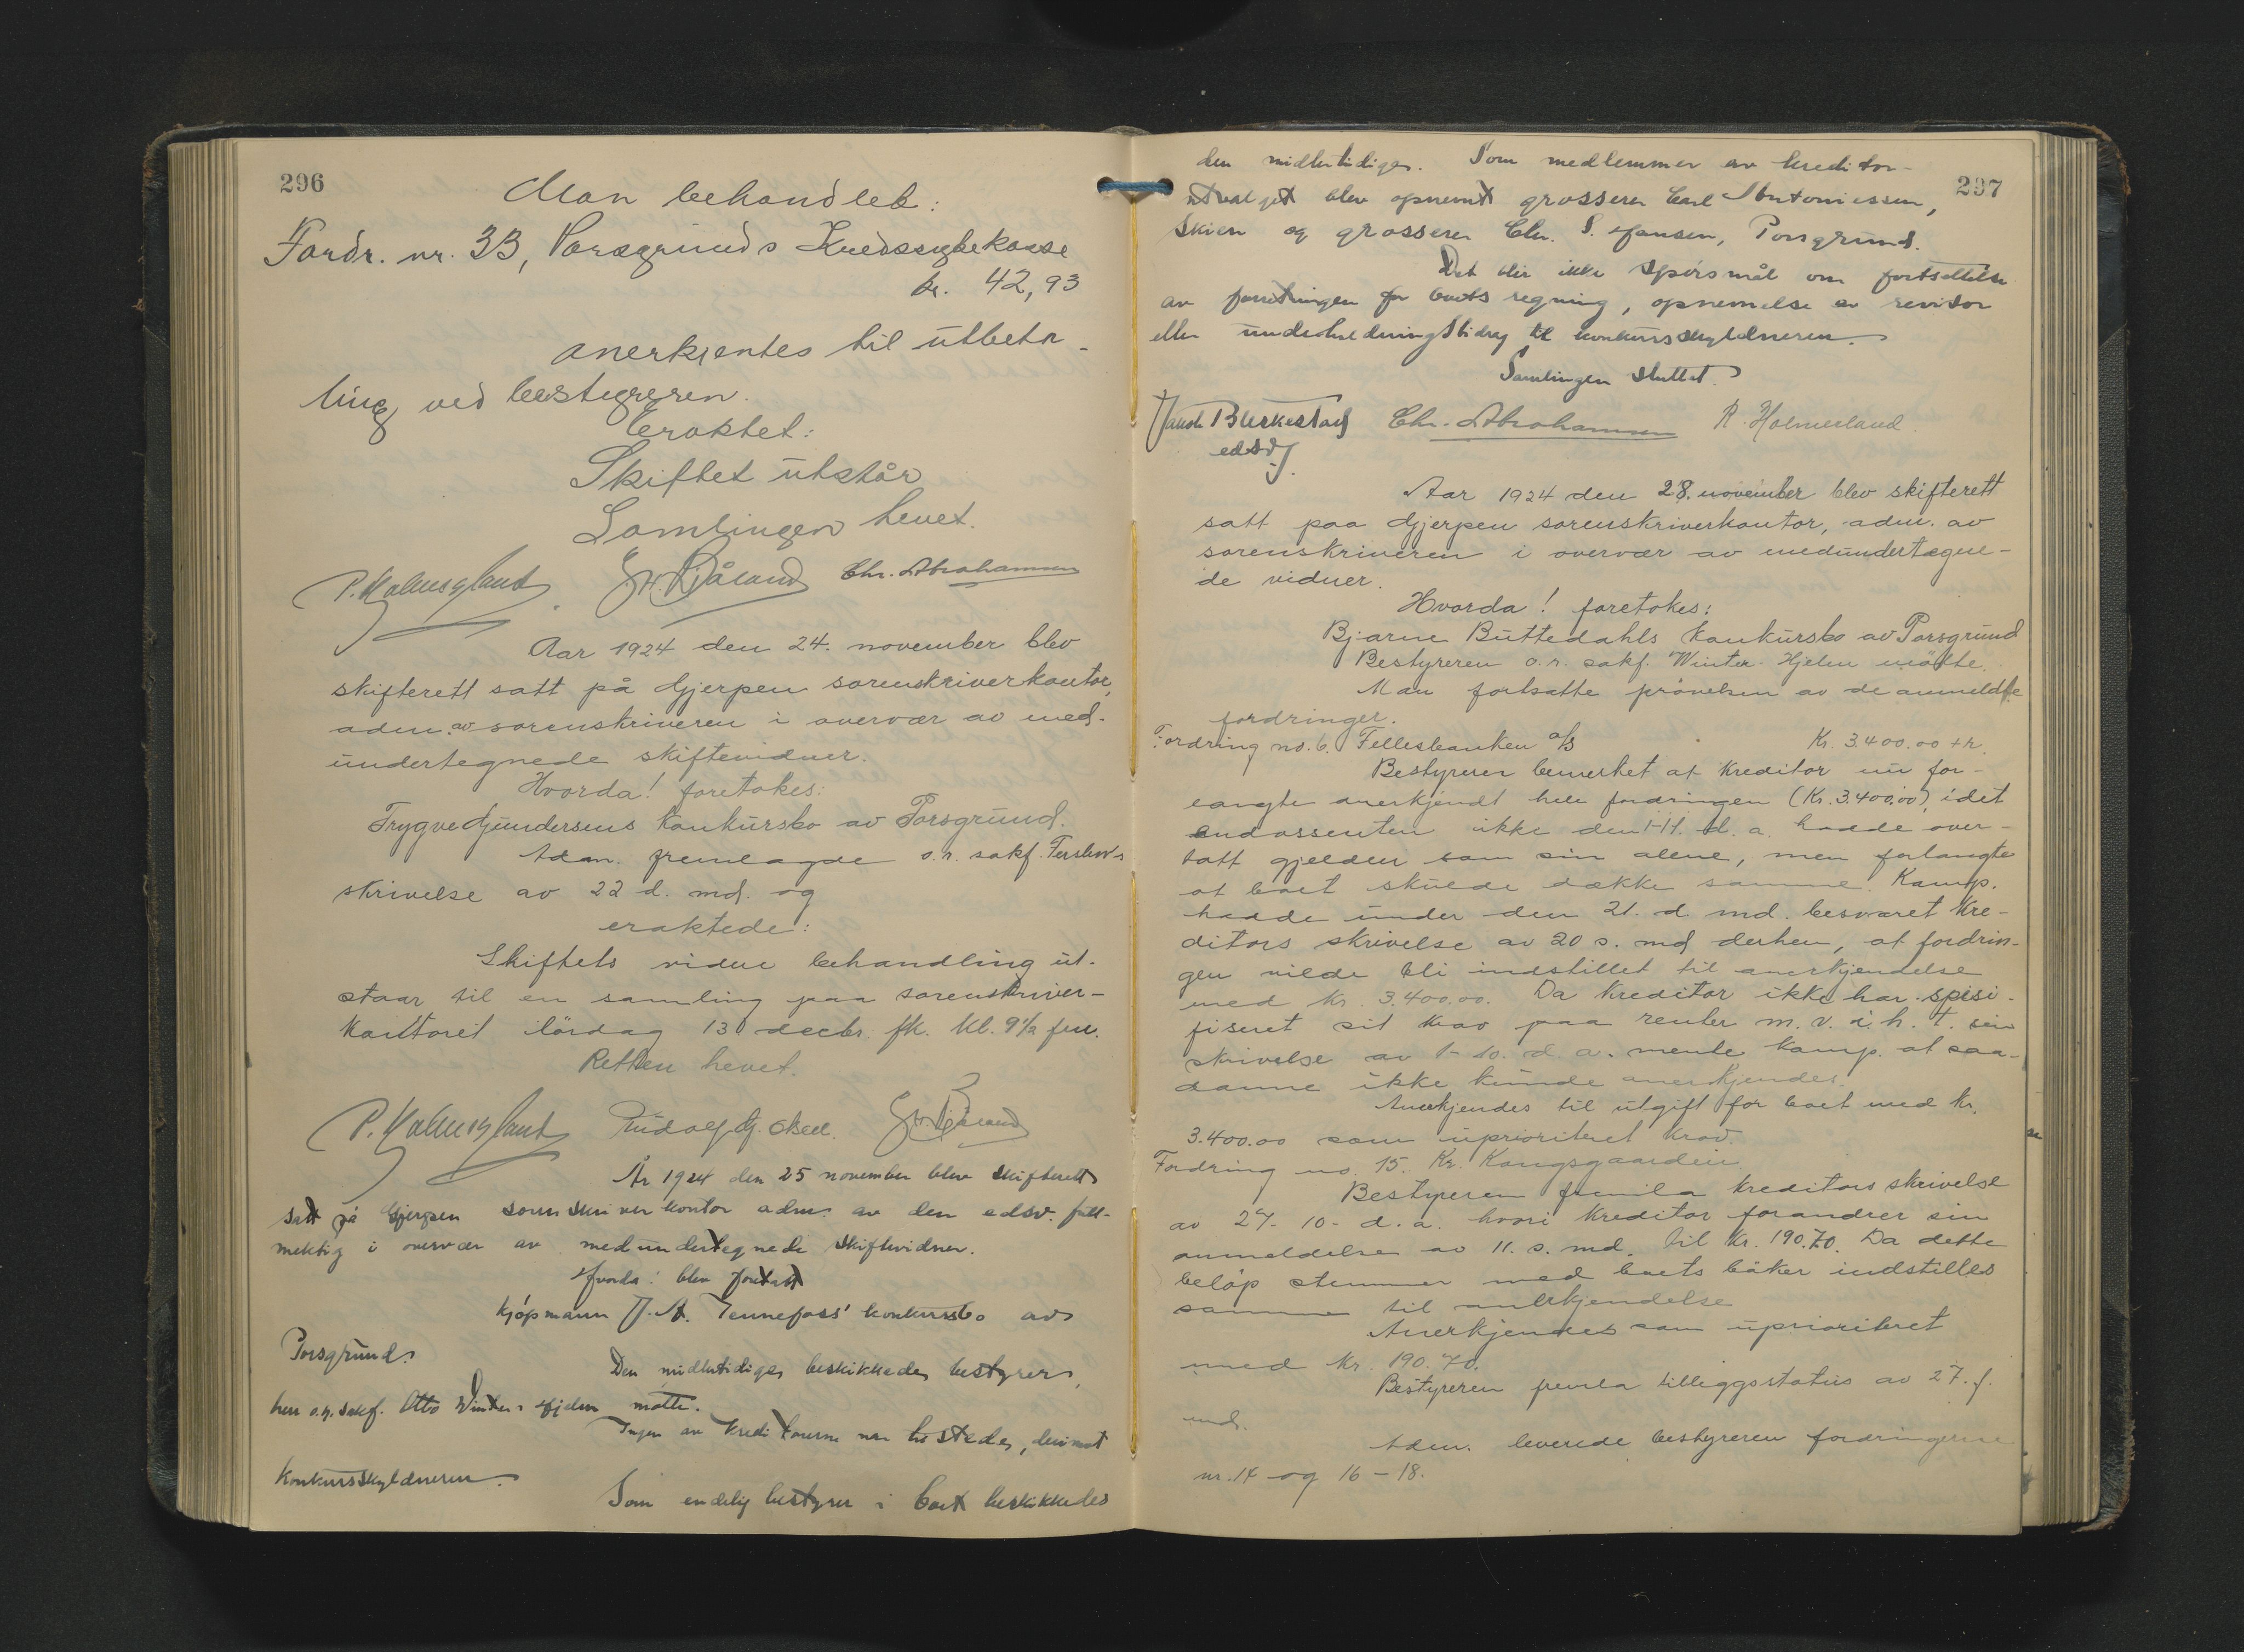 296
Man behandlet:
Fordr. nr. 33, Porsgrunds Kredssykekasse
kr. 42,93
anerkjentes til utbeta-
ling ved bestyreren.
Eraktet:
Skiftet utstår
Samlingen hevet.
Chr. Abrahamsen
Aar 1924 den 24. november blev
skifterett satt på Gjerpen sorenskriverkontor,
adm. av sorenskriveren i overvær av med-
undertegnede skiftevidner.
Hvorda! foretokes:
Trygve Gundersens konkursbo av Porsgrund.
Adm. fremlagde o.r. sakf.
skrivelse av 22 d. md. og
eraktede:
Skiftets videre behandling ut-
staar til en samling paa sorenskriver-
kontoret lördag 13 decbr. fk. kl. 9½ fm.
Retten hevet.
År 1924 den 25 november blev skifterett
satt på Gjerpen sorenskriverkontor adm. av den edsv. full-
mektig i overvær av medundertegnede skiftevidner.
Hvorda! blev foretatt
kjøpmann J. A. Tennefoss' konkursbo av
Porsgrund.
Den midlertidige beskikkede bestyrer,
herr o.r. sakf. Otto Winter-Hjelm møtte.
Ingen av kreditorerne var tilstede, derimot
konkursskyldneren.
Som endelig bestyrer i boet beskikkedes
den midlertidige. Som medlemmer av kreditor-
297
utvalget blev opnevnt grosserer Carl Antoniessen,
Skien og grosserer Chr. S. Hansen, Porsgrund.
Det blir ikke spørsmål om fortsettelse
av forretningen for boets regning, opnevnelse av revisor
eller underholdningsbidrag til konkursskyldneren.
Samlingen sluttet.
edsv.
Chr. Abrahamsen R. Holmerland
Aar 1924 den 28. november blev skifterett
satt paa Gjerpen sorenskriverkontor, adm. av
sorenskriveren i overvær av medundertegne-
de vidner.
Hvorda! foretokes:
Bjarne Buttedahls konkursbo av Porsgrund
Bestyreren o.r. sakf. Winter-Hjelm mötte.
Man fortsatte prövelsen av de anmeldte
fordringer.
Fordring no. 6. Fellesbanken a/s Kr. 3.400.00 + r.
Bestyreren bemerket at kreditor nu for-
langte anerkjendt hele fordringen (Kr. 3.400.00), idet
endossenten ikke den 1-11. d. a. hadde over-
tatt gjelden som sin alene, men forlangte
at boet skulde dække samme. Komp.
hadde under den 21. d. md. besvaret kre-
ditors skrivelse av 20 s. md derhen, at fordrin-
gen vilde bli indstillet til anerkjendelse
med kr. 3.400.00. Da kreditor ikke har spesi-
fiseret sit krav paa renter m. v. i. h. t. sin
skrivelse av 1-10. d. a. mente komp. at saa-
danne ikke kunde anerkjendes.
Anerkjendes til utgift for boet med kr.
3.400.00 som uprioriteret krav.
Fordring no. 15. Kr. Kongsgaarden
Bestyreren fremla kreditors skrivelse
av 27-10- d. a. hvori kreditor forandrer sin
anmeldelse av 11. s. md. til kr. 190.70. Da dette
belöp stemmer med boets böker indstilles
samme til anerkjendelse
Anerkjendes som uprioriteret
med kr. 190.70.
Bestyreren fremla tilleggsstatus av 27. f.
md.
Adm. leverede bestyreren fordringerne
nr. 14 og 16 – 18.